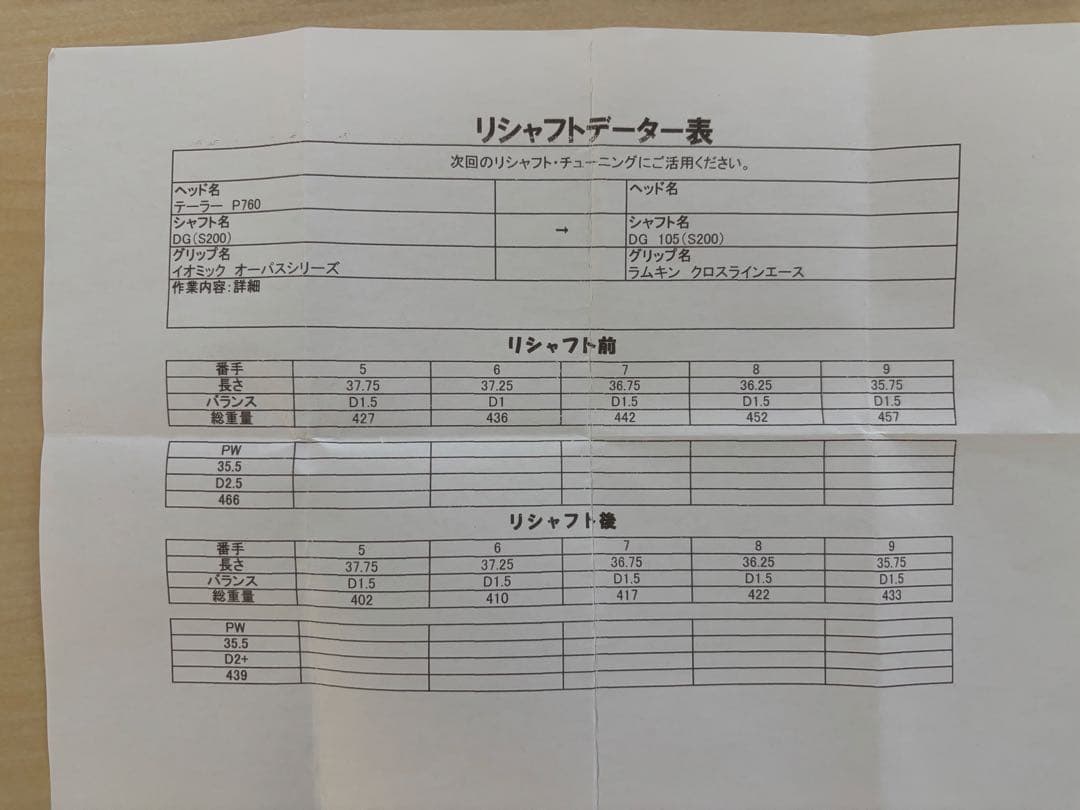 リシャフトデーター表
次回のリシャフト・チューニングにご活用ください。
ヘッド名 ヘッド名
テーラー P760
シャフト名 → シャフト名
DG(S200) DG 105(S200)
グリップ名 グリップ名
イオミック オーパスシリーズ ラムキン クロスラインエース
作業内容:詳細
リシャフト前
番手 5 6 7 8 9
長さ 37.75 37.25 36.75 36.25 35.75
バランス D1.5 D1 D1.5 D1.5 D1.5
総重量 427 436 442 452 457
PW
35.5
D2.5
466
リシャフト後
番手 5 6 7 8 9
長さ 37.75 37.25 36.75 36.25 35.75
バランス D1.5 D1.5 D1.5 D1.5 D1.5
総重量 402 410 417 422 433
PW
35.5
D2+
439